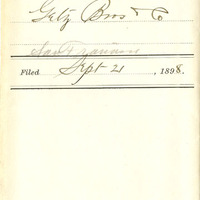 Getz Bros & Co
San Francisco
Filed Sept 21, 1898.